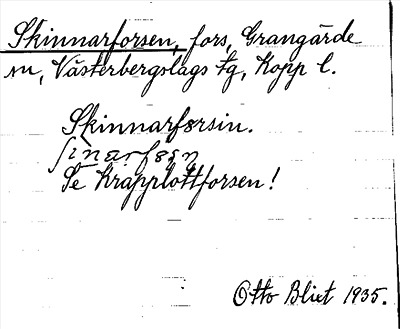 Skinnarforsen, fors, Grangärde
sn, Västerbergslags tg, Kopp l.
Skinnarførsin.
ʃinarføṣṇ
Se Krapplottforsen!
Otto Blixt 1935.